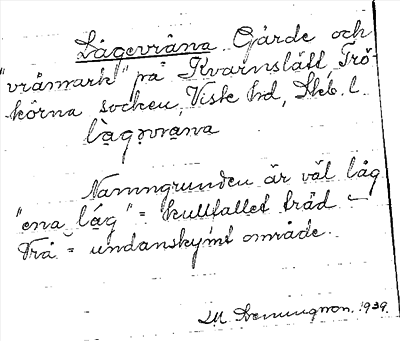 Lågevråna. Gärde och
"vråmark" på Kvarnslätt Trö-
körna socken, Viste hd, Skb. l.
lågəvrana
Namngrunden är väl låg
"ena låg" = kullfallet träd –
Vrå = undanskymt område.
1939.